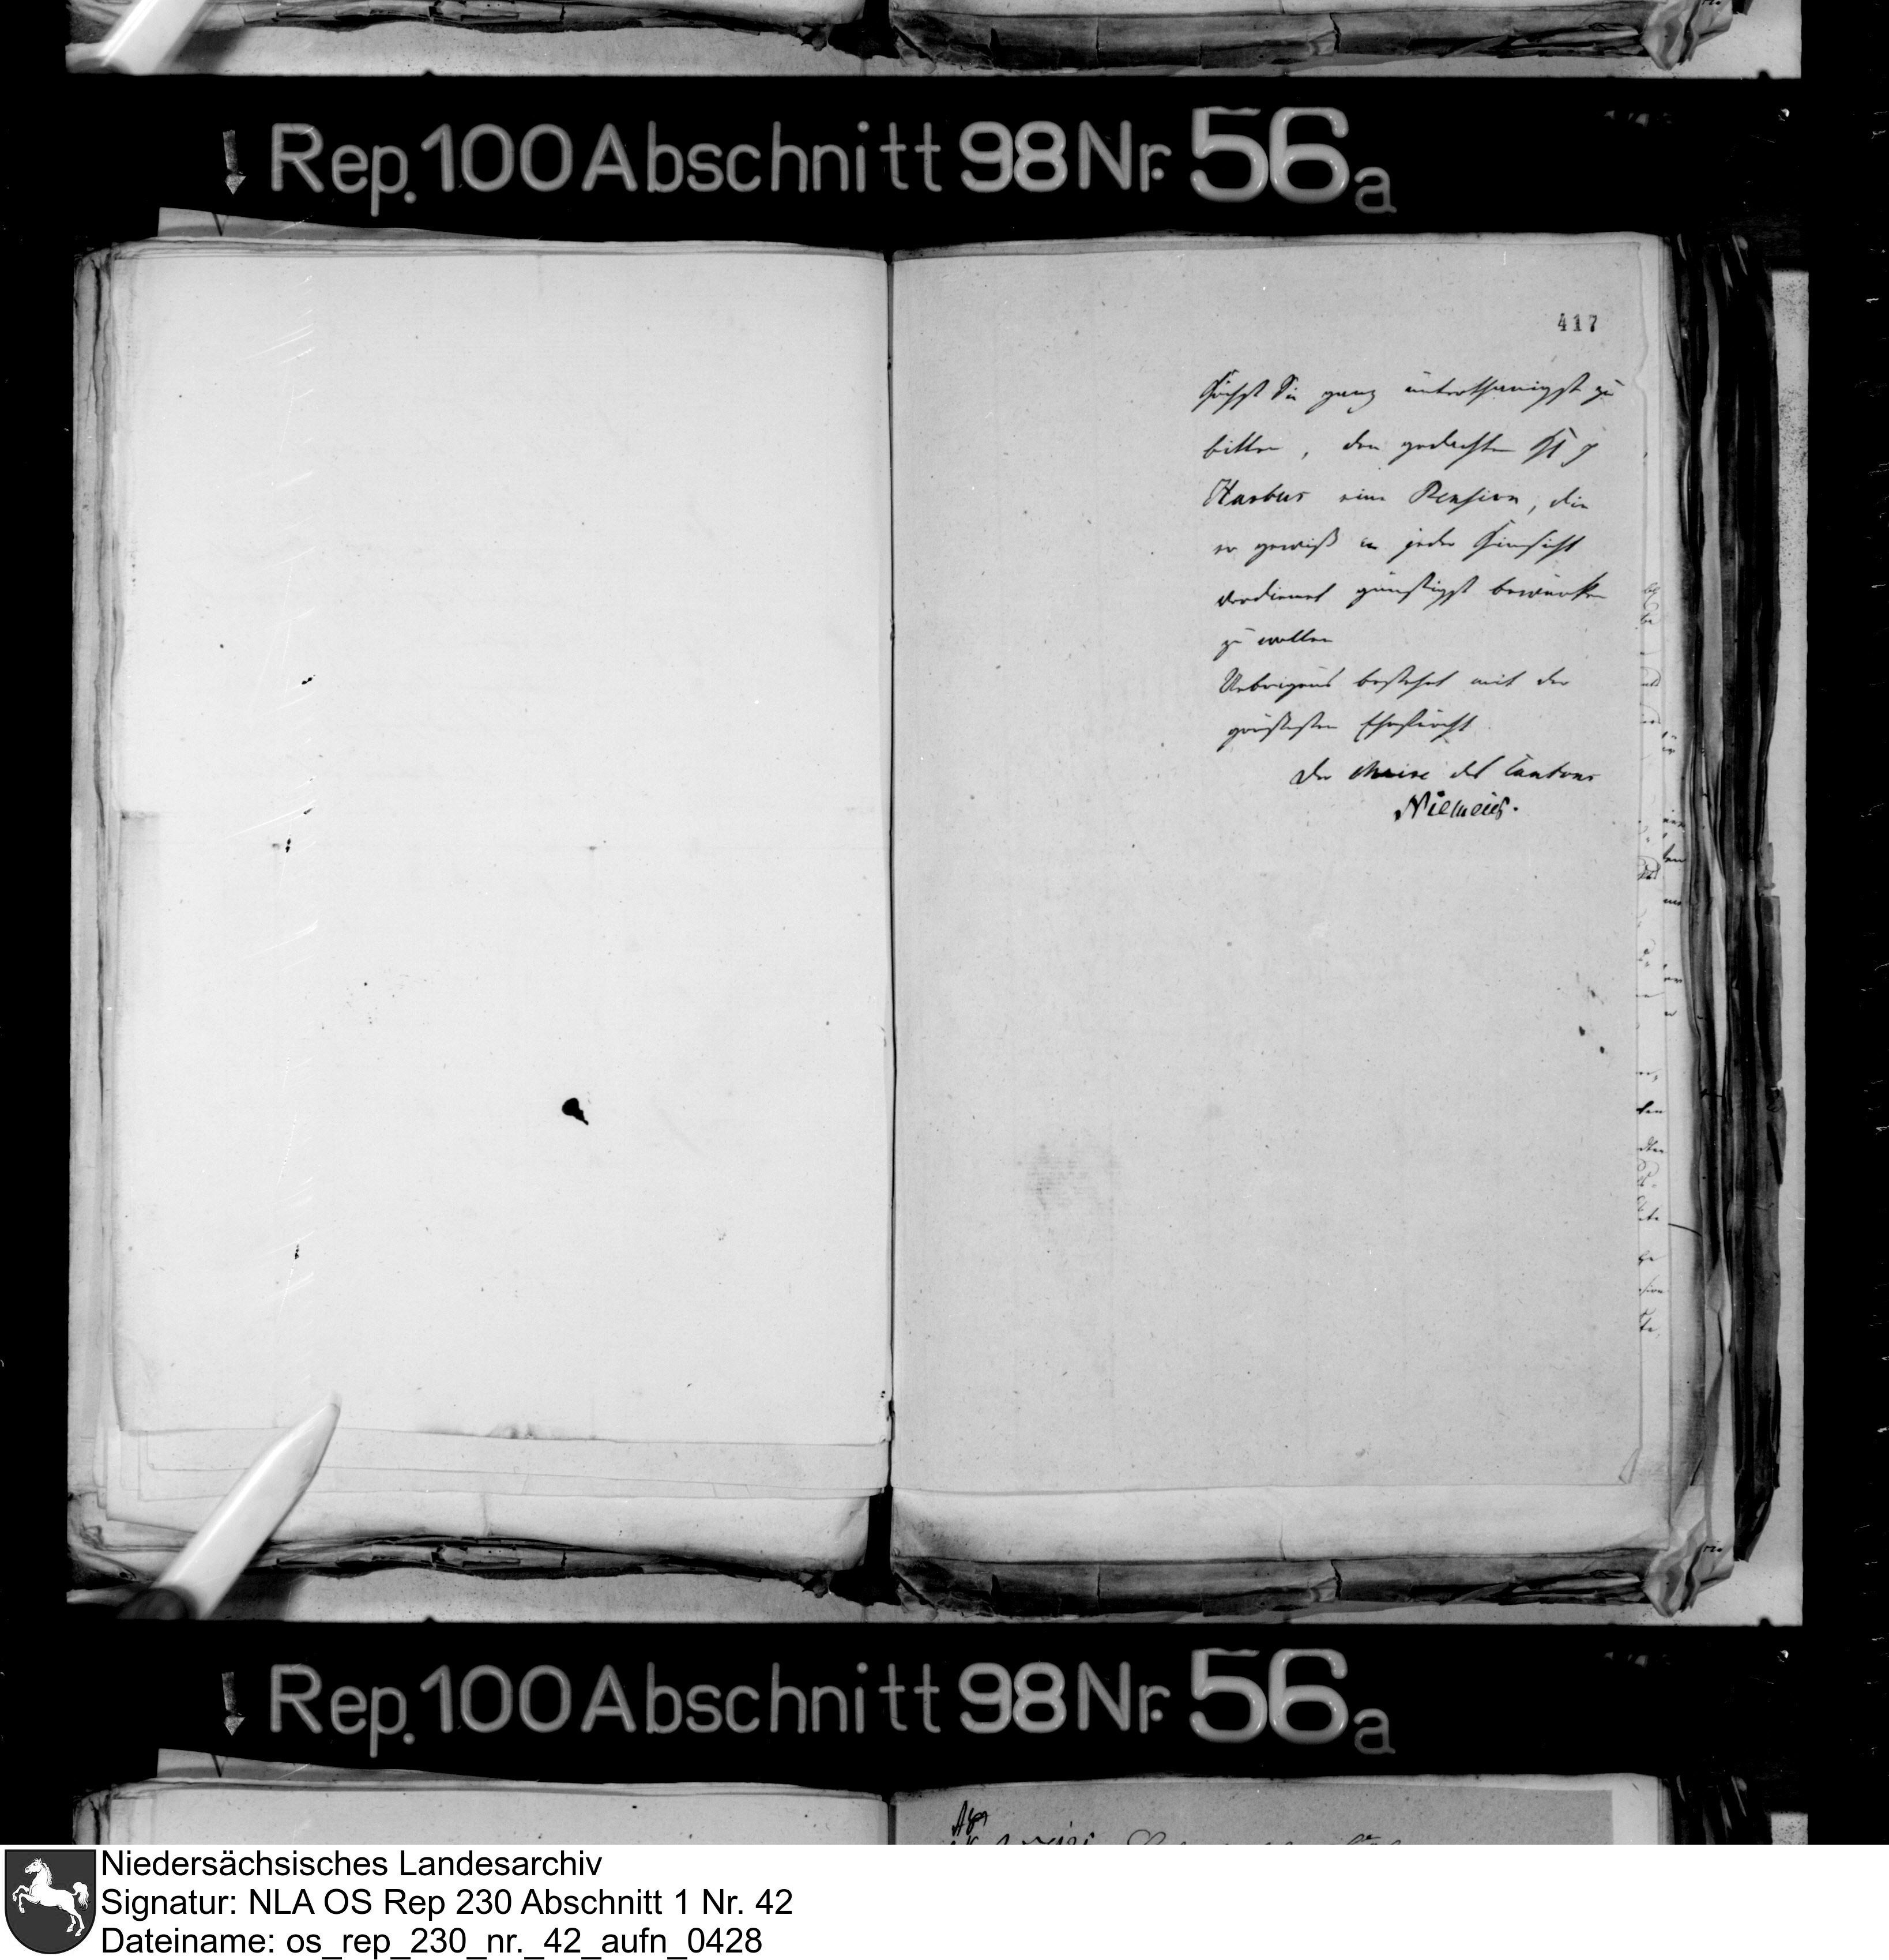 Rep. 100 Abschnitt 98 Nr. 56a
417
Höchst Sie ganz unterthanigst zu
bitten, den gedachten
Harbur eine Pension, die
er gewiß in jeder Hinsicht
verdienet günstigst bewürken
zu wollen
Uebrigens bestehet mit der
größesten Ehrfurcht
Der Maire des Cantons
Niemeier.
Rep. 100 Abschnitt 98 Nr. 56a
Niedersächsisches Landesarchiv
Signatur: NLA OS Rep 230 Abschnitt 1 Nr. 42
Dateiname: os_rep_230_nr._42_aufn_0428